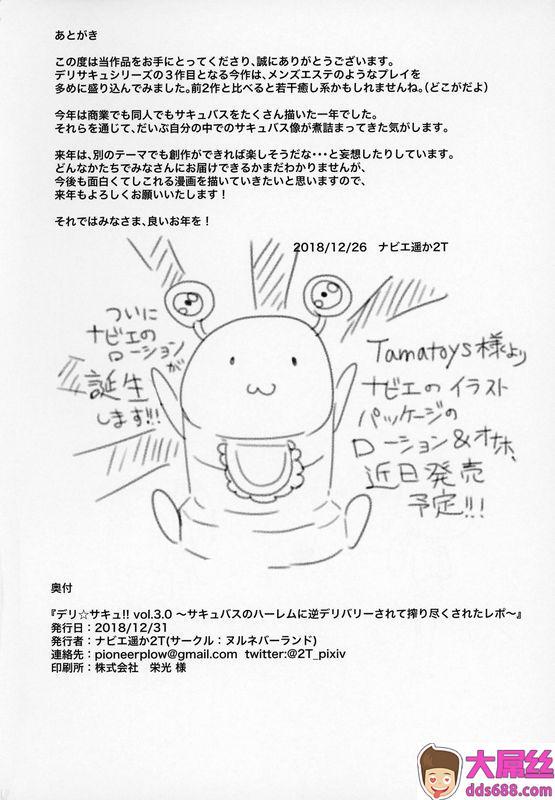 あとがき
この度は当作品をお手にとってくださり、誠にありがとうございます。
デリサキュシリーズの3作目となる今作は、メンズエステのようなプレイを
多めに盛り込んでみました。前2作と比べると若干癒し系かもしれませんね。(どこがだよ)
今年は商業でも同人でもサキュバスをたくさん描いた一年でした。
それらを通じて、だいぶ自分の中でのサキュバス像が煮詰まってきた気がします。
来年は、別のテーマでも創作ができれば楽しそうだな・・・と妄想したりしています。
どんなかたちでみなさんにお届けできるかまだわかりませんが、
今後も面白くてしこれる漫画を描いていきたいと思いますので、
来年もよろしくお願いいたします!
それではみなさま、良いお年を!
2018/12/26 ナビエ遥か2T
ついに
ナビエの
ローションが
誕生
します!!!
Tamatoys様より
ナビエのイラスト
パッケージの
ローション&オナホ、
近日発売
予定!!!
奥付
『デリ☆サキュ!! vol.3.0 〜サキュバスのハーレムに逆デリバリーされて搾り尽くされたレポ〜』
発行日:2018/12/31
発行者:ナビエ遥か2T(サークル:ヌルネバーランド)
連絡先:pioneerplow@gmail.com twitter:@2T_pixiv
印刷所:株式会社 栄光 様
大屌丝
dds688.com